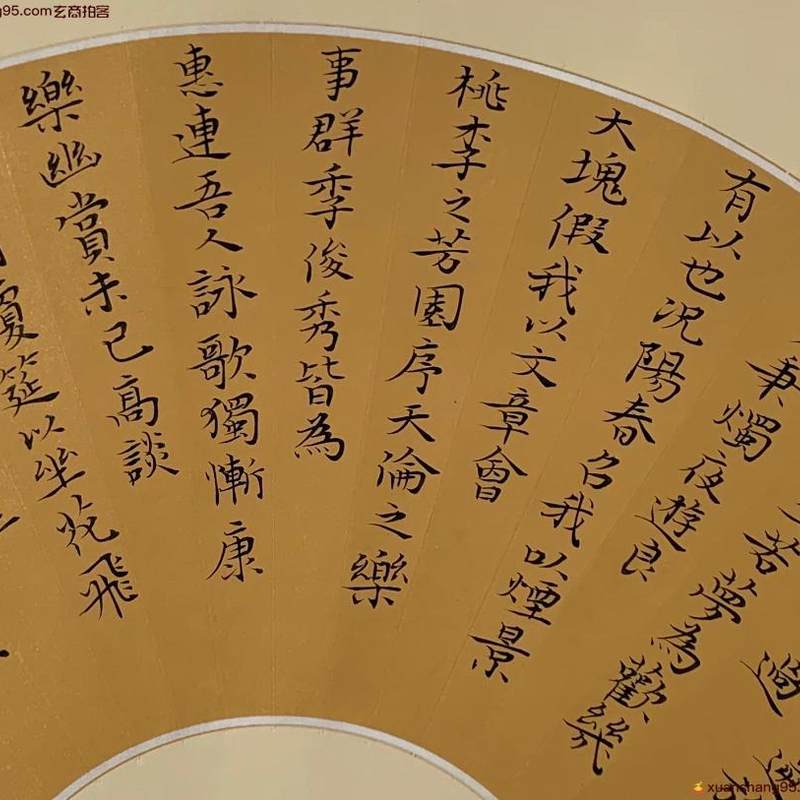 過
若夢為歡幾
秉燭夜遊良
有以也况陽春召我以煙景
大塊假我以文章會
桃李之芳園序天倫之樂
事群季俊秀皆為
惠連吾人詠歌獨慚康
樂幽賞未已高談
瓊筵以坐花飛
95.com玄商拍客
xuanshang95.